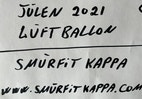 JÜLEN 2021
LÜFTBALLON
SMÜRFiT KAPPA
WWW.SMÜRFiT KAPPA.COM